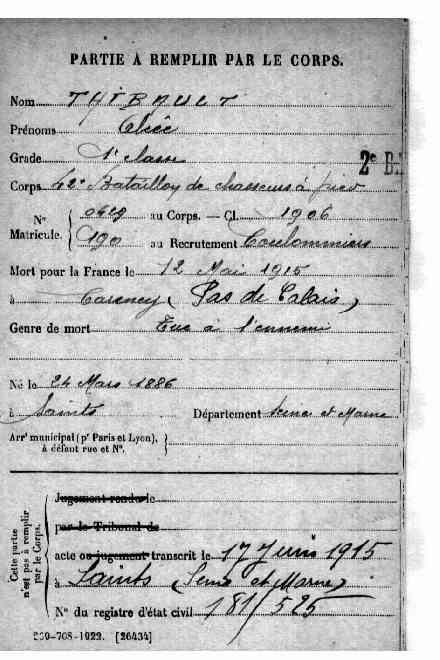 PARTIE À REMPLIR PAR LE CORPS.
Nom THIBAULT
Prénoms Elisée
Grade 1e classe
2e B.
Corps 42e Bataillon de chasseurs à pied
N° 0429 au Corps. — Cl. 1906
Matricule. 190 au Recrutement Coulommiers
Mort pour la France le 12 Mai 1915
à Carency (Pas de Calais)
Genre de mort Tué à l'ennemi
Né le 24 Mars 1886
à Saints Département Seine et Marne
Arrt municipal (pr Paris et Lyon),
à défaut rue et N°.
Cette partie n'est pas à remplir par le Corps.
Jugement rendu le
par le Tribunal de
acte ou jugement transcrit le 17 Juin 1915
à Saints (Seine et Marne)
N° du registre d'état civil 181/525
-708-1922. [26434]